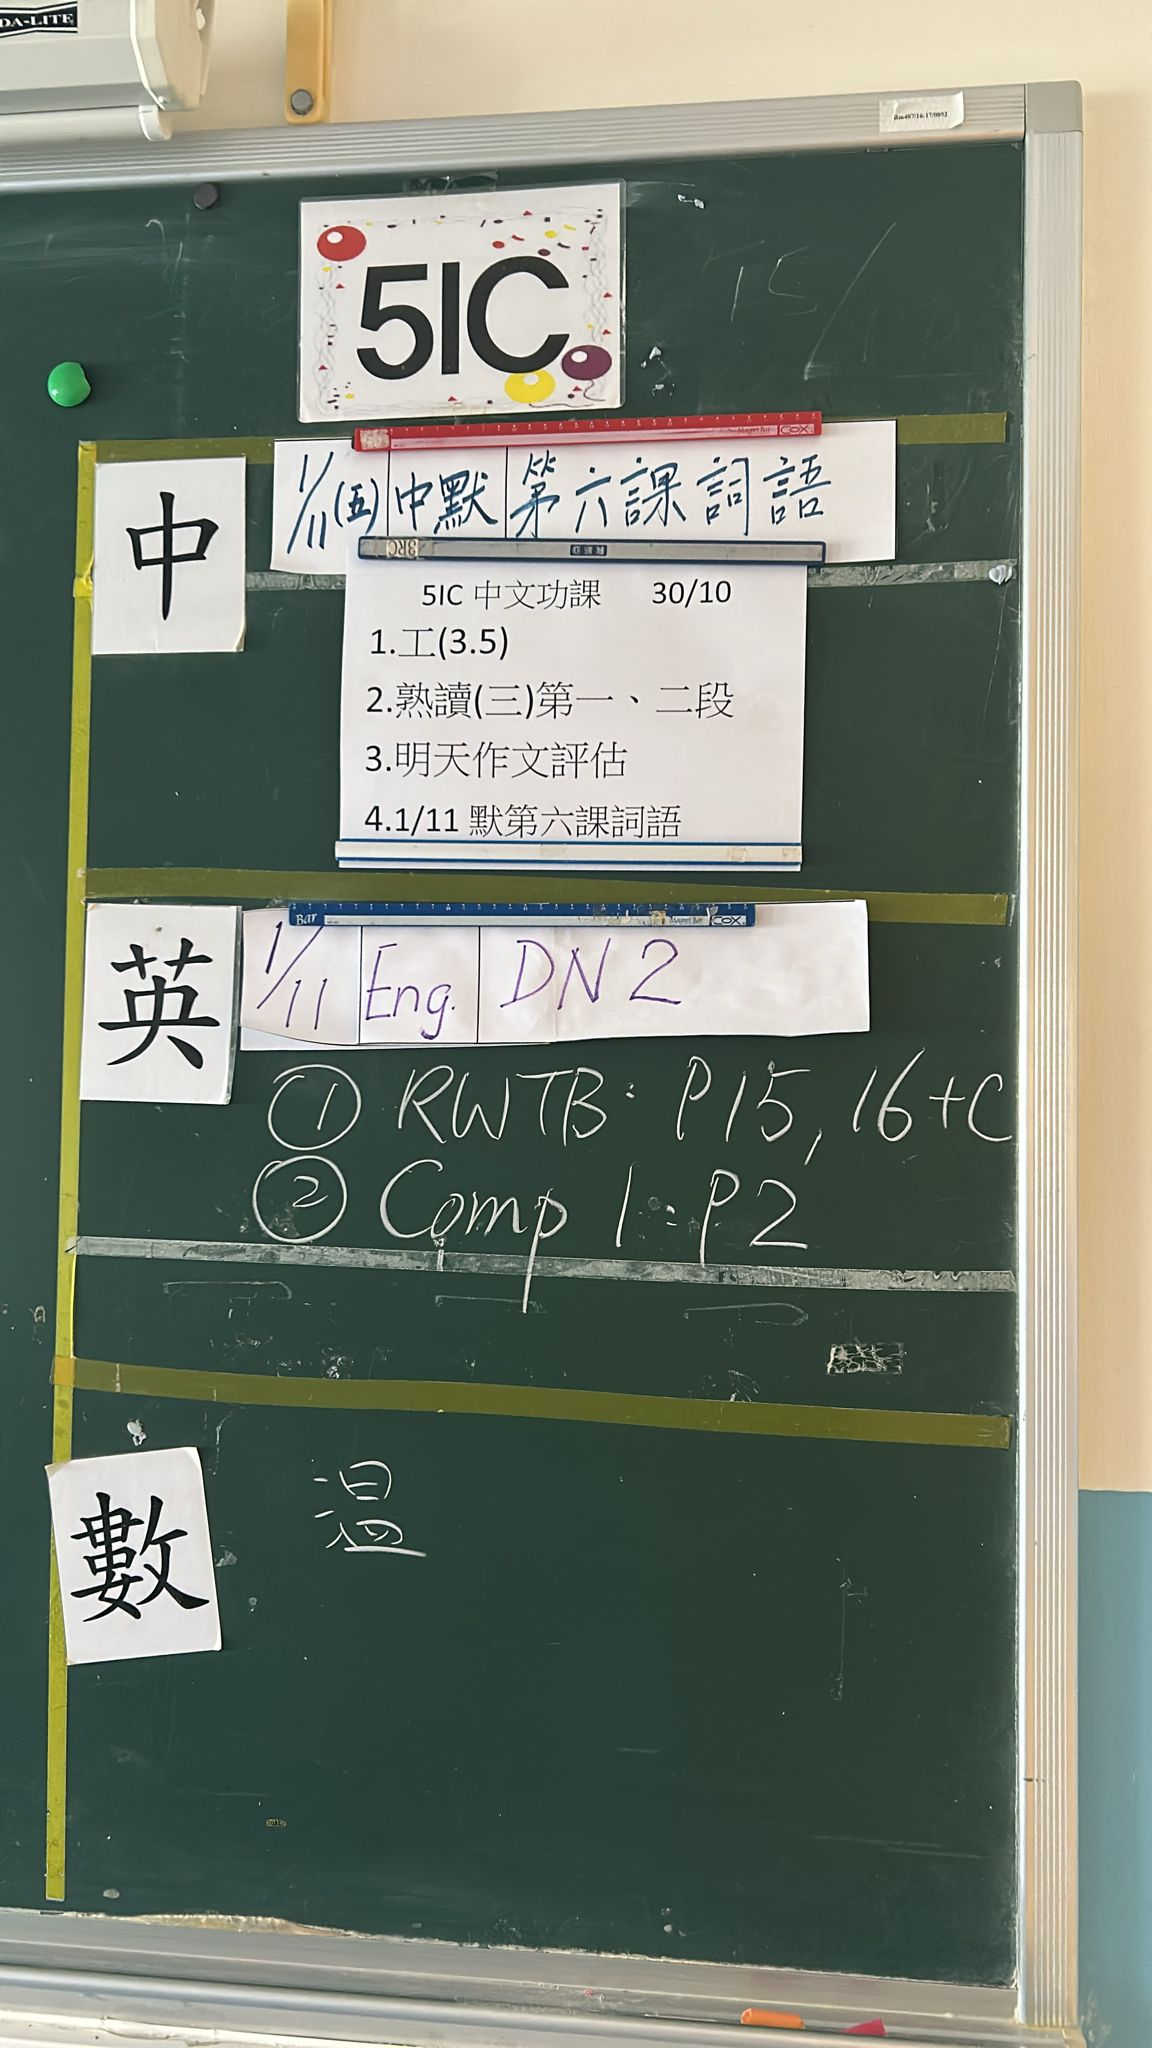 DA-LITE
Rm407/16-17/0052
5IC
中
1/11(五) 中默 第六課詞語
5IC 中文功課 30/10
1.工(3.5)
2.熟讀(三)第一、二段
3.明天作文評估
4.1/11 默第六課詞語
英
Bar
Magnet Bar COX
1/11 Eng. DN 2
① RWTB: P15, 16+C
② Comp 1: P2
數
溫